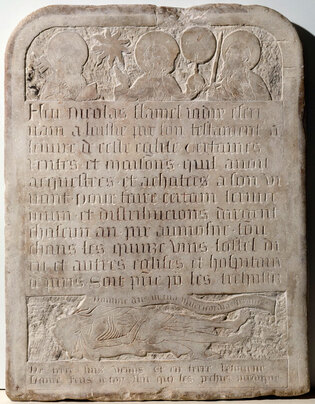 Feu nicolas flamel iadis escri
uain a laissie par son testament a
leuure de ceste eglise certaines
rentes et maisons quil auoit
acquestees et achatees a son vi
uant pour faire certain seruice
diuin et distribucions dargent
chascun an par aumosne tou
chans les quinze vins lostel di
eu et autres eglises et hospitaux
a paris Soit prie pour les trespassez
Domine deus in tua misericordia speraui
De terre suis venus et en terre retourne
lame rens a toy qui les pechiez pardonne